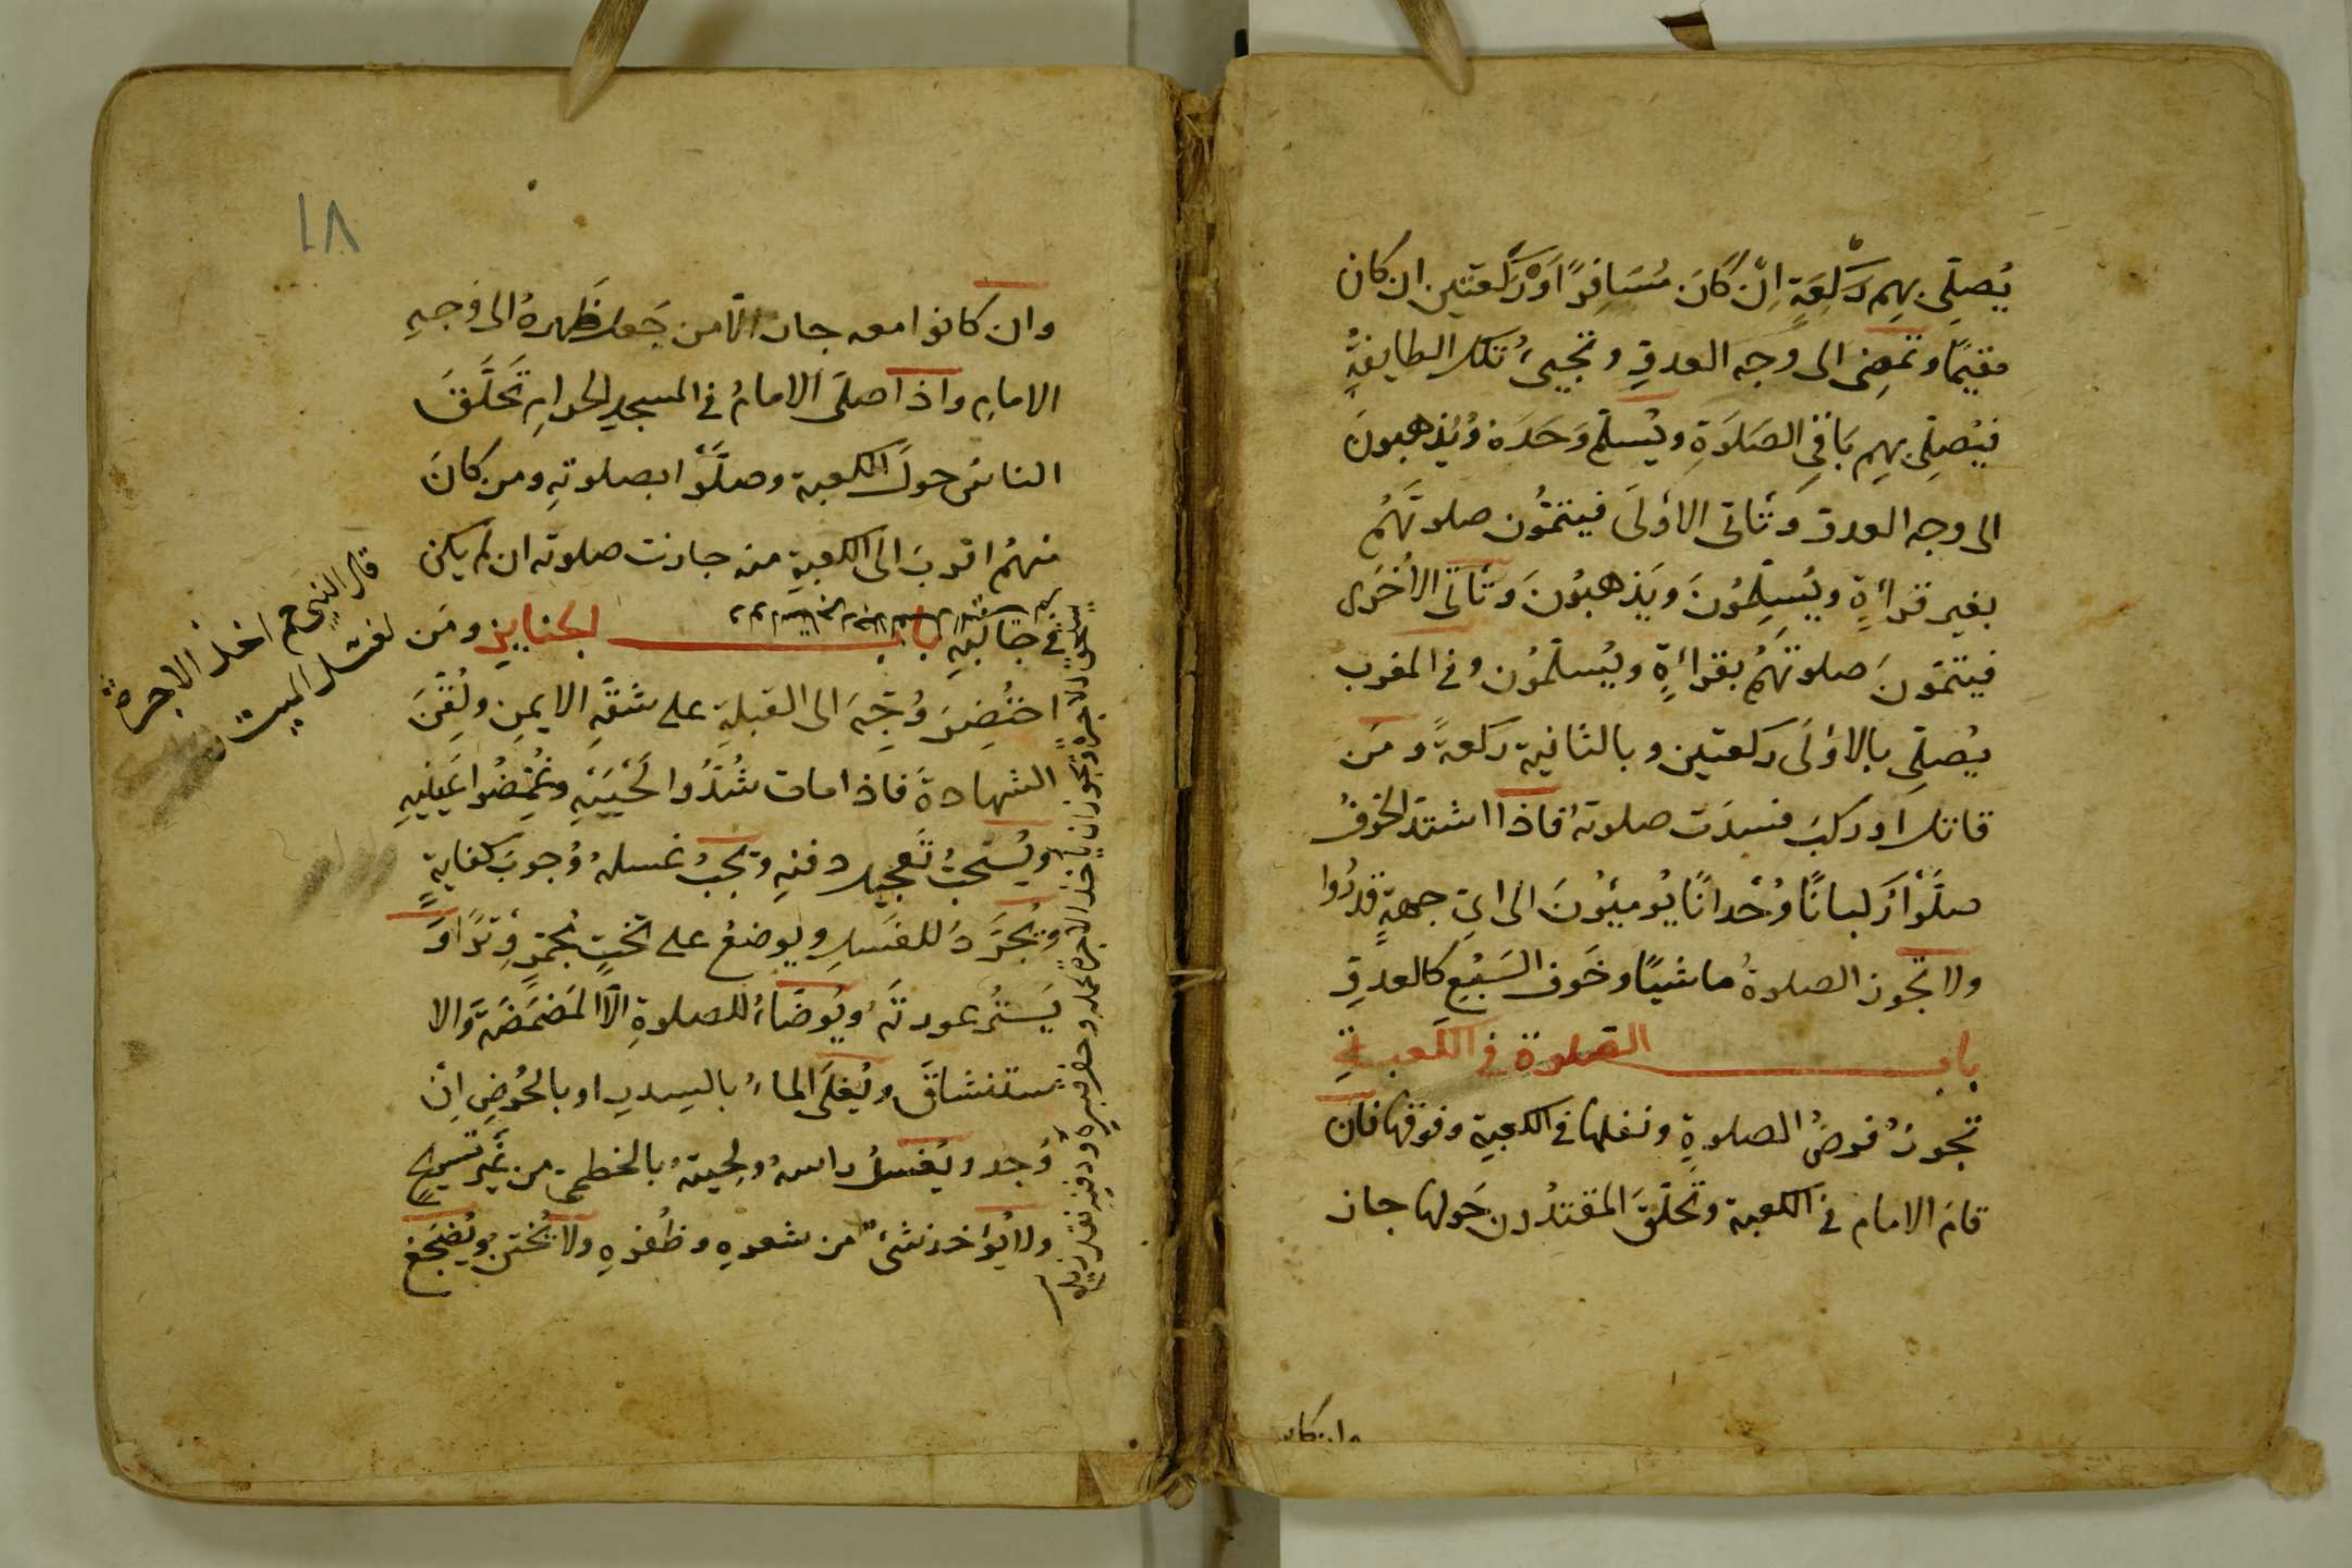 يُصلّى بهم ركعةٍ اِنْ كَانَ مُسَافِرًا اَوْ ركعتين ان كان
مقيمًا وتمضى الى وجه العدوِّ وتجيىُٔ تلك الطايفةُ
فيُصلّى بهم باقى الصَلوَةِ ويُسلّم وَحدَهُ وَيَذهبونَ
الى وجه العدوّ وَتَأتى الاُولَى فيتمُّون صلوتَهُم
بغير قراءَةٍ ويُسلِّمُونَ ويَذهبُونَ وتَأتَى الاُخرَى
فيتمّونَ صلوتَهُم بقراءَةٍ ويُسلّمُون وفى المغرب
يُصلّى بالاوُلَى ركعتين وبالثانية ركعةً ومَن
قاتل او ركبَ فسدَت صلوتهُ فاذا اشتدّ الخوفُ
صلَّوْا رُكبانًا وُحْدانًا يُومئُونَ الى اىّ جهةٍ قدرُوا
ولا تجوز الصلوةُ ماشيًا وخَوف السَبُعِ كالعدوِّ
باب الصّلوة فى الكعبةِ
تجوزُ فرضُ الصلوةِ ونفلها فى الكعبةِ وفوقها فان
قامَ الامام فى الكعبة وتحلّقَ المقتدُون حَولها جاز
وان كانوا
وان كانوا معه جاز الّا من جَعل ظَهرهُ الى وَجهِ
الامامِ واذا صلّى الامامُ فى المسجد الحرامِ تَحَلَّقَ
الناسُ حولَ الكعبة وصلَّوْا بصلوتهِ ومن كانَ
منهمُ اقربَ الى الكعبةِ منه جازت صلوته ان لم يكن
فى جانبهِ باب الجنايز ومَن
احتُضِرَ وُجِّهَ الى القبلةِ على شقّهِ الايمنِ ولُقِّنَ
الشهادةَ فاذا مات شُدُّوا لَحْيَيْهِ وغُمِّضُوا عَينَيهِ
ويُستَحبُّ تَعجيل دفنهِ ويَجبُ غسلهُ وُجوبَ كفايةٍ
ويُجَرَّدُ للغسلِ ويوضعُ على تختٍ مجمّرٍ وِترًا وَ
يَستُرُ عورتَهُ ويُوضّاءُ للصلوةِ الّا المَضمَضَةَ والا
ستنشاقَ ويُغلَى الماءُ بالسِدرِ او بالحُرضِ اِنْ
وُجد ويُغسلُ راسهُ ولِحيتهُ بالخطمى من غَير تسريحٍ
ولا يُؤاخذ شئٌ من شعرهِ وظُفرهِ ولا يُختنُ ويُضجَعُ
قال النبى عم اخذ الاجرة
لغسل الميت
١٨